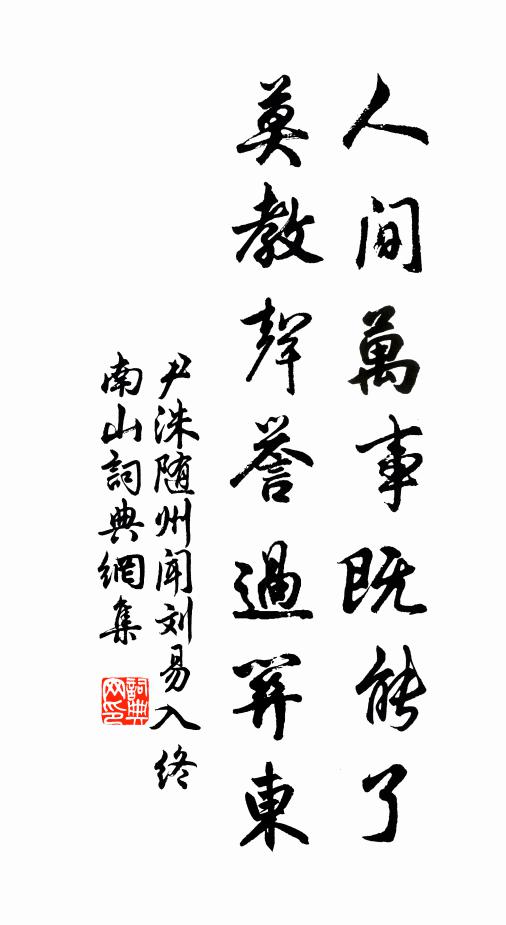 人间萬事既能了
莫教聲譽過關東
尹洙随州闻刘易入终
南山詞典網集
詞典网印